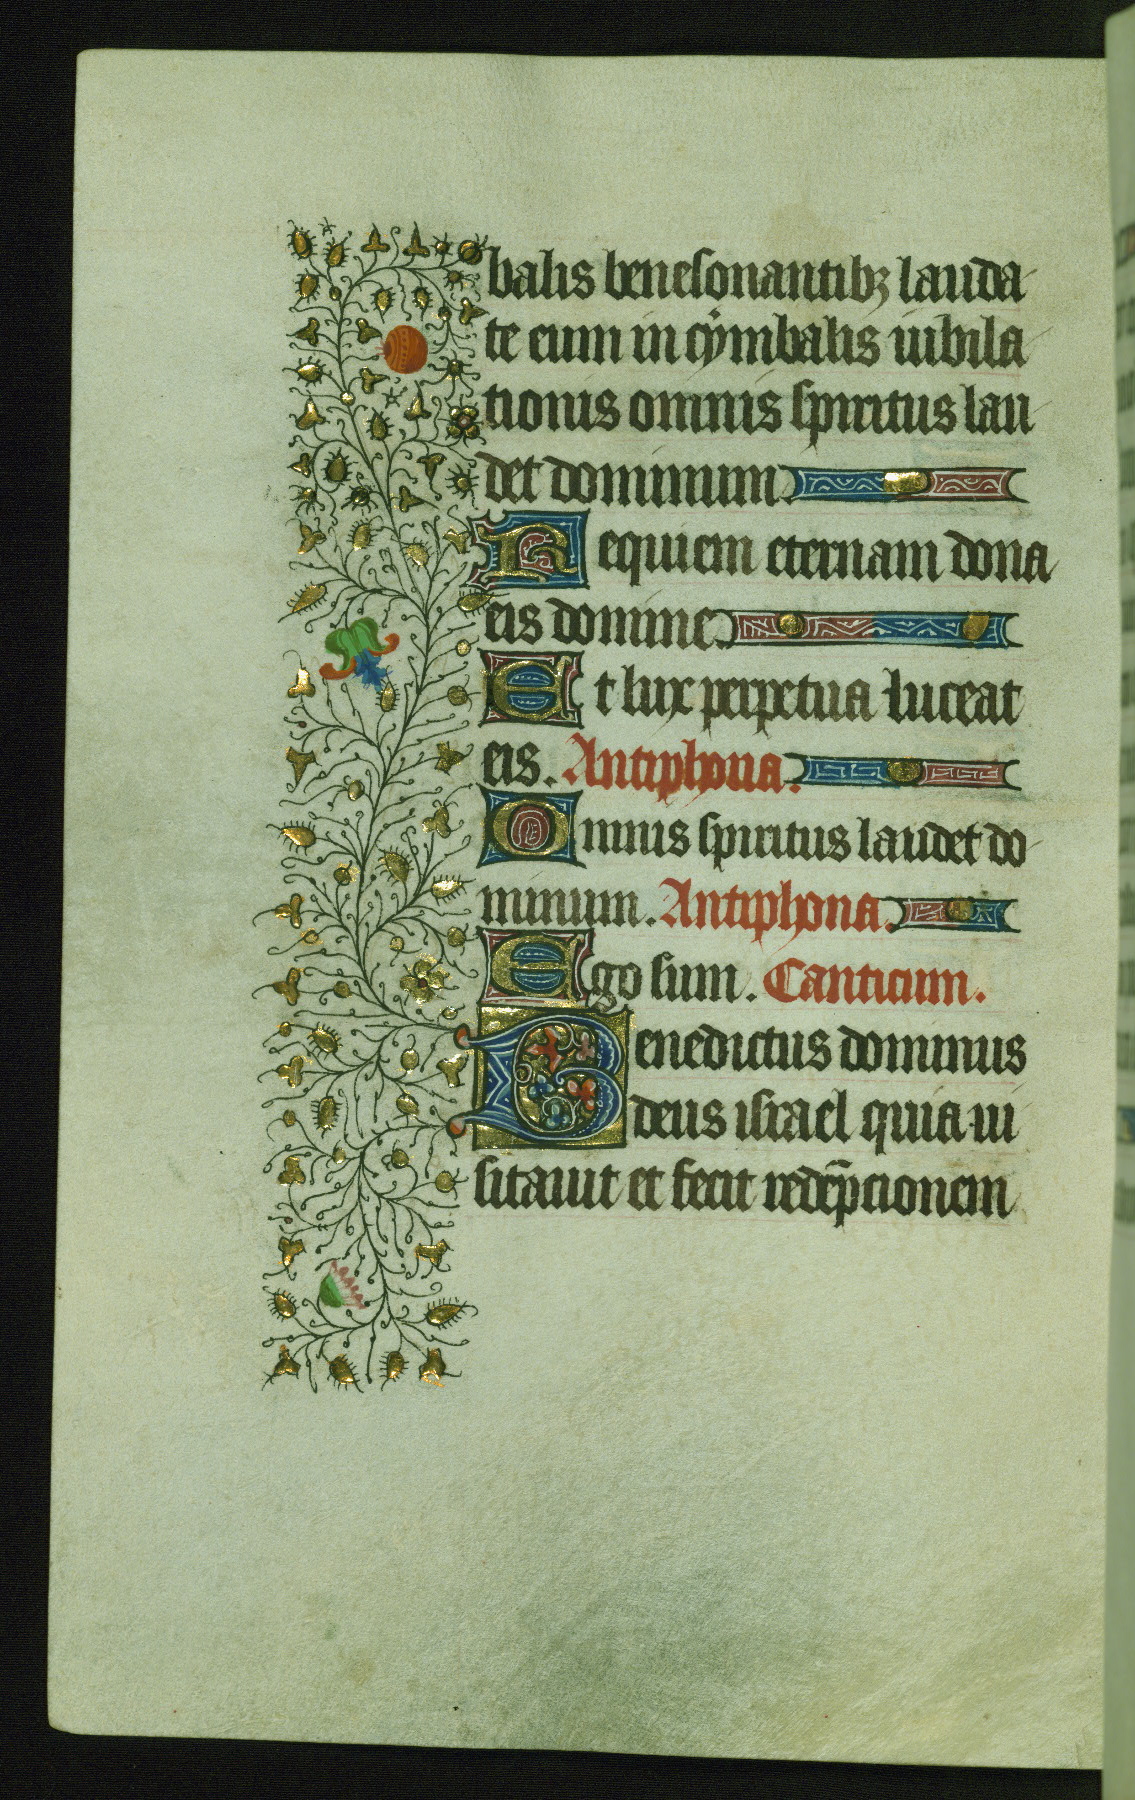 balis benesonantibꝫ lauda
te eum in cymbalis iubila
tionis omnis spiritus lau
det dominum
Requiem eternam dona
eis domine
Et lux perpetua luceat
eis. Antiphona.
Omnis spiritus laudet do
minum. Antiphona.
Ego sum. Canticum.
Benedictus dominus
deus israel quia ui
sitauit et fecit redēpcionem